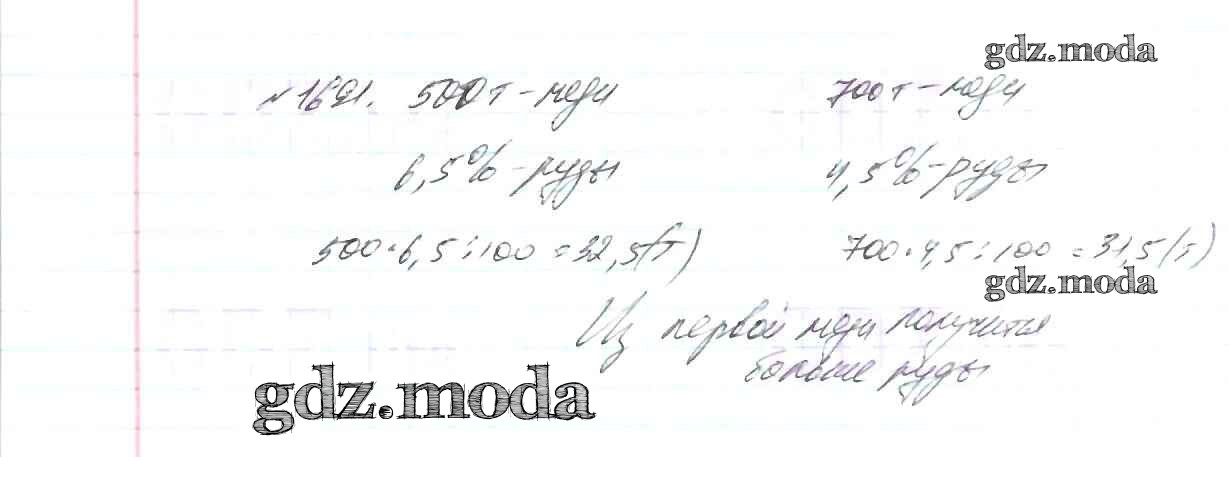 gdz.moda
№1691. 500т-меди 700т-меди
6,5%-руды 4,5%-руды
500·6,5:100=32,5(т) 700·4,5:100=31,5(т)
gdz.moda
Из первой меди получится
больше руды
gdz.moda